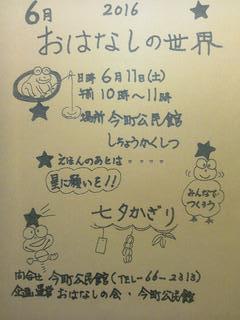 6月 2016
おはなしの世界
日時 6月11日(土)
午前 10時～11時
場所 今町公民館
しちょうかくしつ
えほんのあとは・・・・
星に願いを!!
みんなで
つくろう
七夕かざり
問合せ 今町公民館(TEL-66-2313)
企画運営 おはなしの会・今町公民館